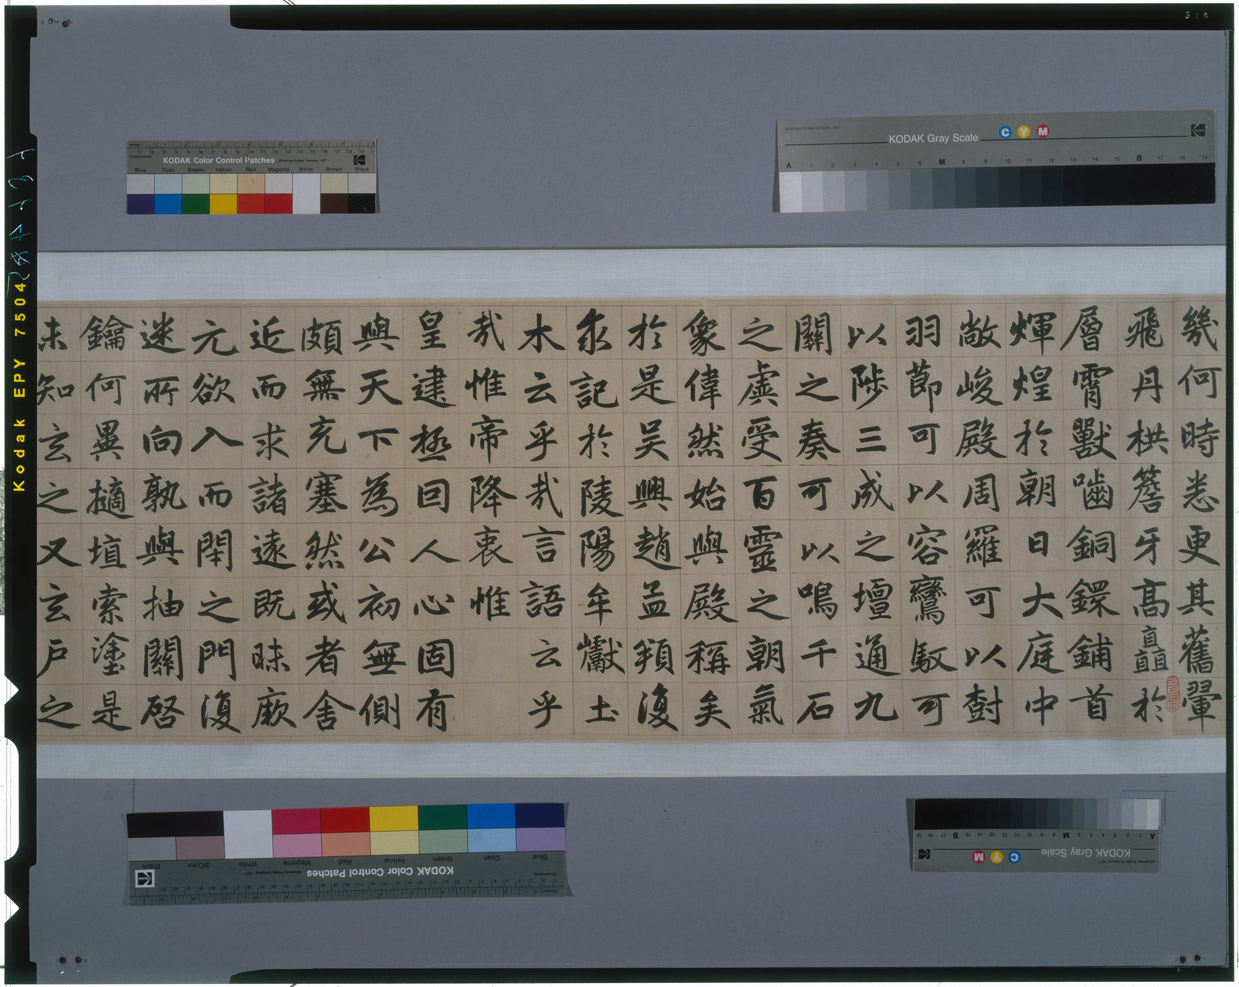 幾何時悉更其舊翬
飛丹栱簷牙高矗於
層霄獸嚙銅鐶鋪首
輝煌於朝日大庭中
敞峻殿周羅可以𡬶
羽節可以容鸞馭可
以陟三成之壇通九
關之奏可以鳴千石
之虡受百靈之朝氣
象偉然始與殿稱矣
於是吳興趙孟頫復
求記於陵陽牟巘土
木云乎哉言語云乎
哉惟帝降衷惟
皇建極回人心固有
與天下為公初無側
頗無充塞然或者舍
近而求諸遠既昧厥
元欲入而閉之門復
迷所向孰與抽關啓
鑰何異擿埴索塗是
未知玄之又玄戶之
KODAK Color Control Patches
Blue Cyan Green Yellow Red Magenta White Brown Black
KODAK Gray Scale
C Y M
A M B
Kodak EPY 7504
KODAK Color Control Patches
Blue Cyan Green Yellow Red Magenta White 3/Color Black
KODAK Gray Scale
C Y M
A M B